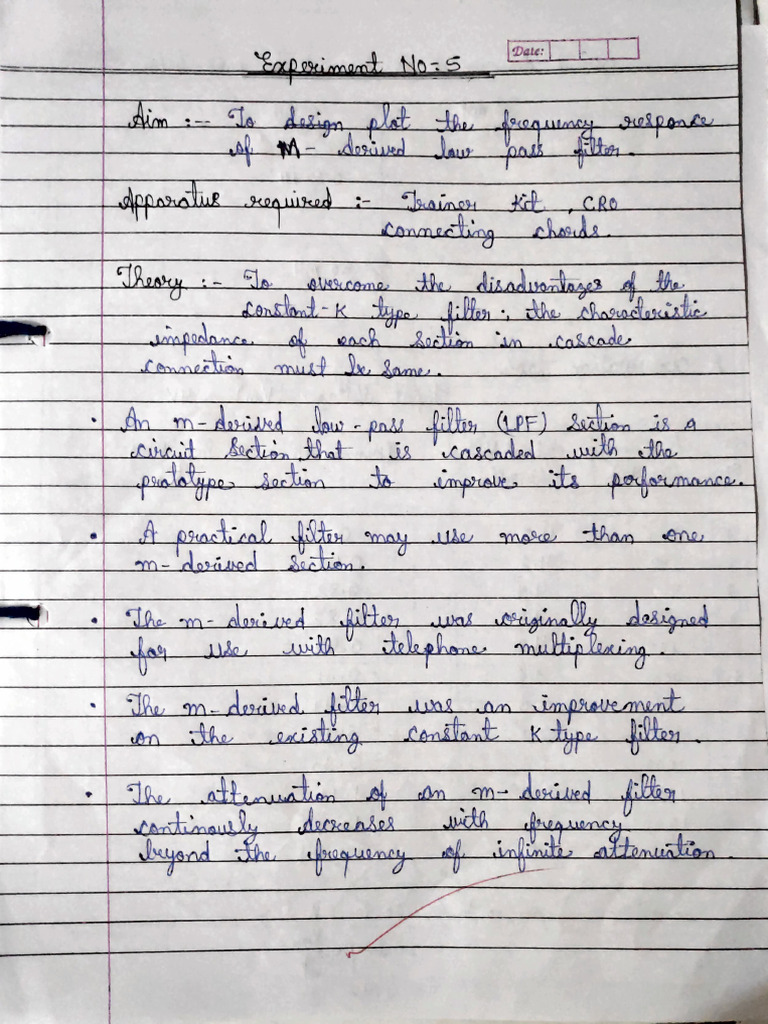 Date:
Experiment No = 5
Aim :-- To design plot the frequency response
of M- derived low pass filter.
Apparatus required :- Trainer Kit, CRO
connecting chords.
Theory :- To overcome the disadvantages of the
constant-K type filter; the characteristic
impedance of each section in cascade
connection must be same.
• An m-derived low-pass filter (LPF) section is a
circuit section that is cascaded with the
prototype section to improve its performance.
• A practical filter may use more than one
m-derived section.
• The m-derived filter was originally designed
for use with telephone multiplexing.
• The m-derived filter was an improvement
on the existing constant K type filter.
• The attenuation of an m-derived filter
continously decreases with frequency
beyond the frequency of infinite attenuation.